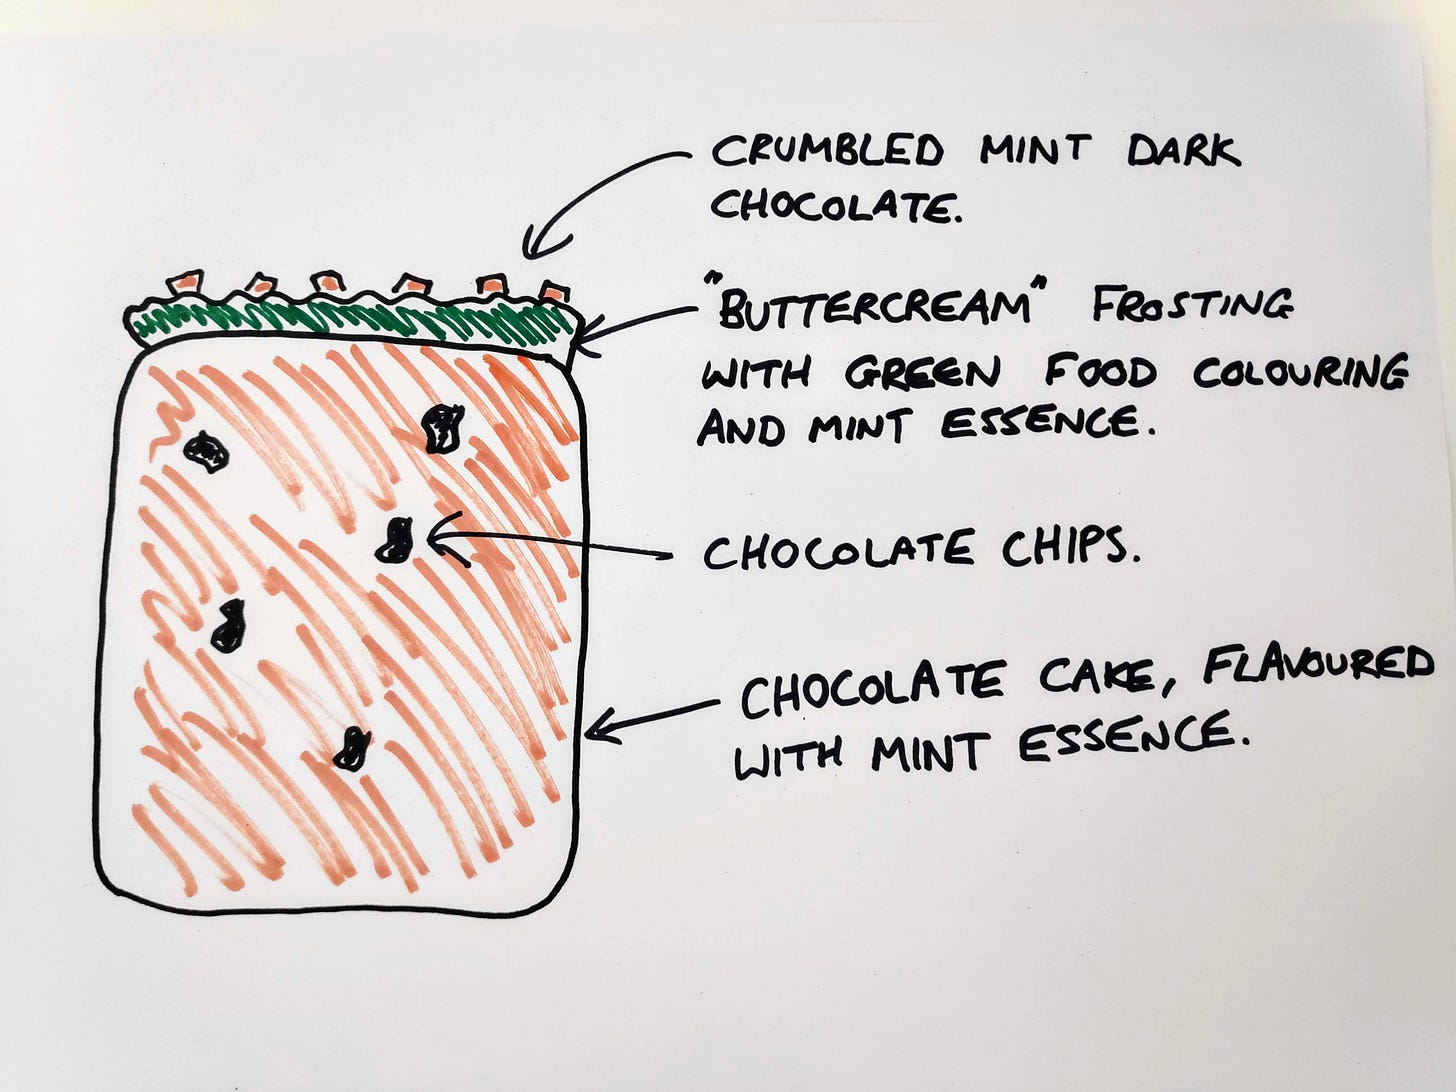 CRUMBLED MINT DARK
CHOCOLATE.
"BUTTERCREAM" FROSTING
WITH GREEN FOOD COLOURING
AND MINT ESSENCE.
CHOCOLATE CHIPS.
CHOCOLATE CAKE, FLAVOURED
WITH MINT ESSENCE.